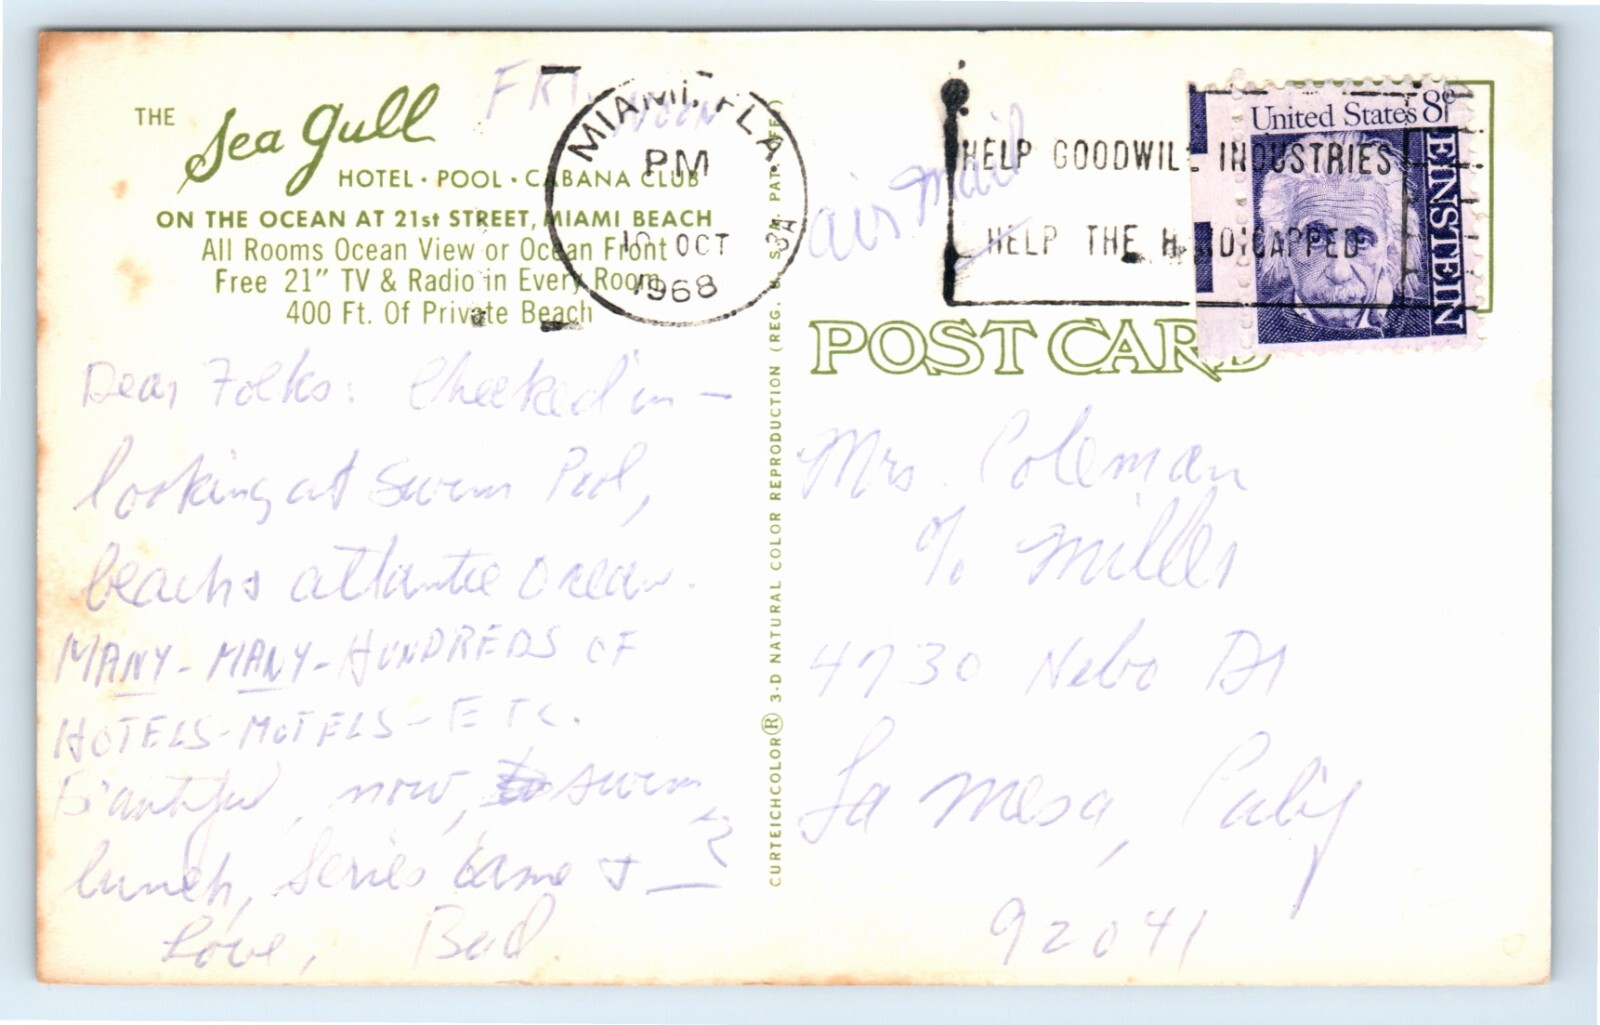 THE Sea Gull
HOTEL · POOL · CABANA CLUB
ON THE OCEAN AT 21st STREET, MIAMI BEACH
All Rooms Ocean View or Ocean Front
Free 21" TV & Radio in Every Room
400 Ft. Of Private Beach
FRI. NOON
MIAMI, FLA.
PM
OCT
1968
Dear Folks: Checked in -
looking at swim Pool,
beach & atlantic Ocean.
MANY - MANY - HUNDREDS OF
HOTELS - MOTELS - ETC.
now, swim,
lunch, Series Game & — ?
Love, Bud.
CURTEICHCOLOR® 3-D NATURAL COLOR REPRODUCTION (REG. U. S. PAT.
air mail
HELP GOODWILL INDUSTRIES
HELP THE HANDICAPPED
United States 8c
EINSTEIN
POST CARD
Mrs. Coleman
c/o Miller
4730 Nebo Dr
La Mesa, Calif
92041